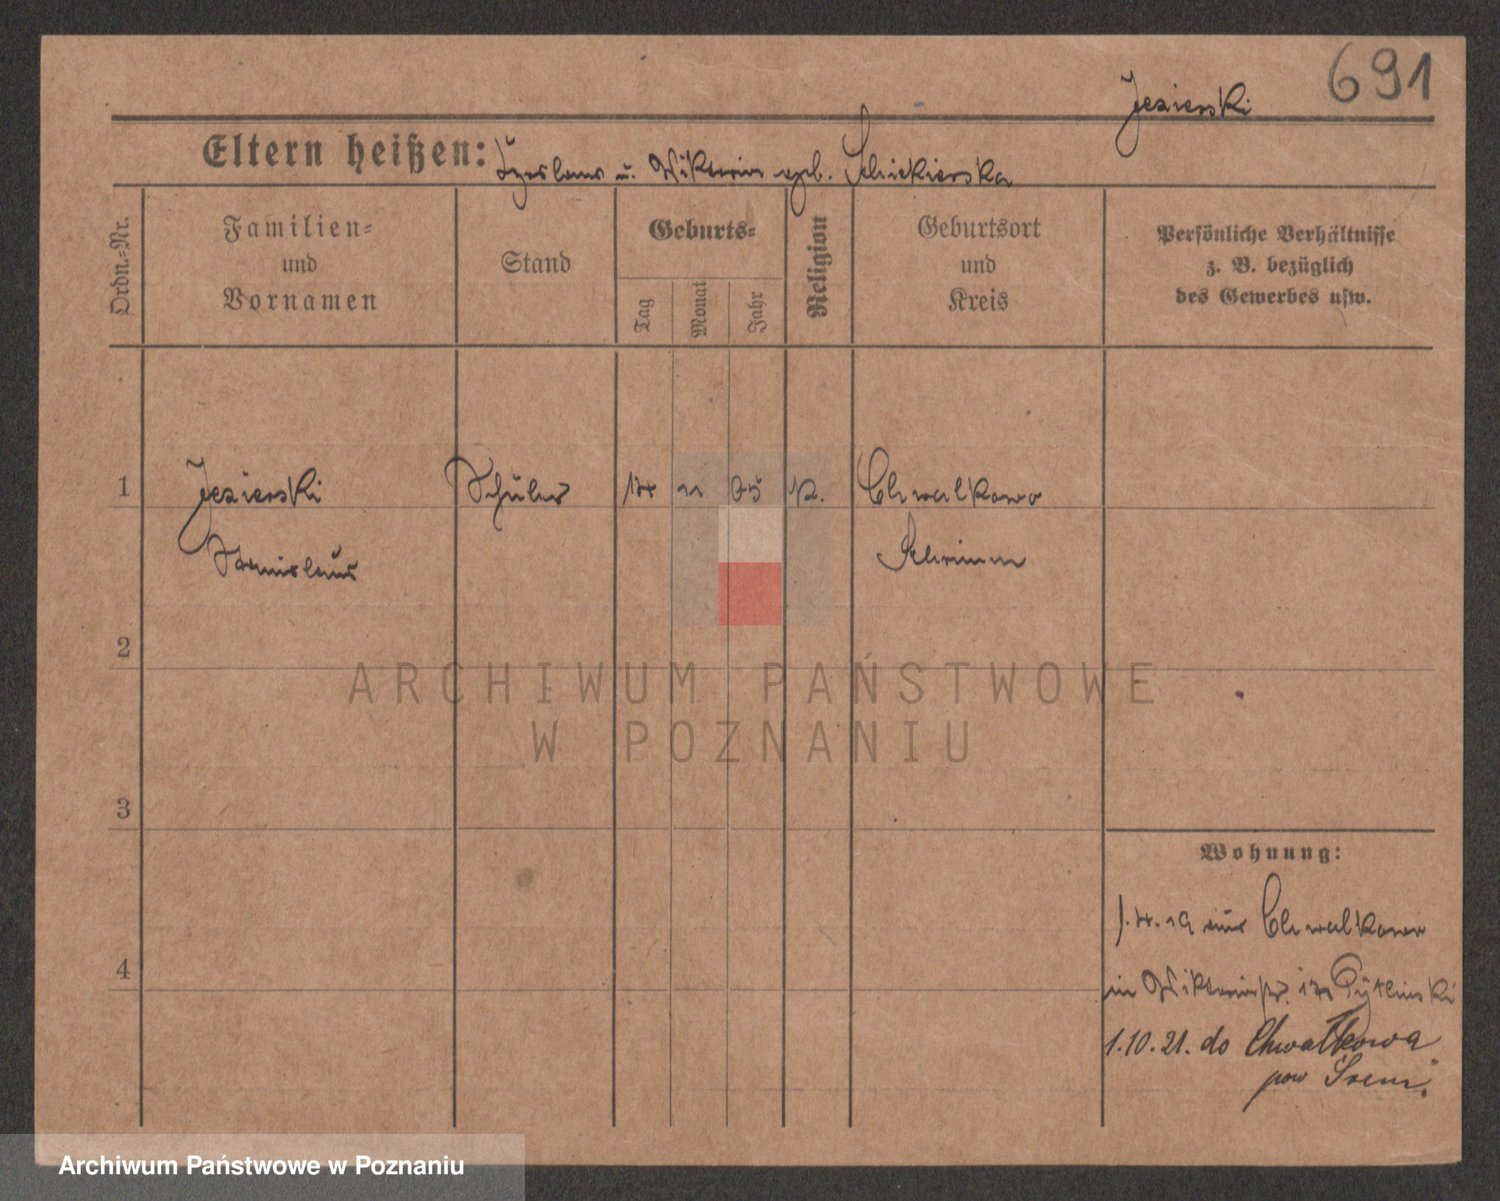 691
Jezierski
Eltern heißen: Czeslaus u. Wiktoria geb.
Ordn.-Nr.
Familien-
und
Vornamen
Stand
Geburts-
Tag
Monat
Jahr
Religion
Geburtsort
und
Kreis
Persönliche Verhältnisse
z. B. bezüglich
des Gewerbes usw.
1
Jezierski Schüler 14 11 05 k. Chwalkowo
Stanislaus Schrimm
2
3
4
Wohnung:
1.4.19 aus Chwalkowo
in
1.10.21. do Chwałkowa
pow Śrem.
ARCHIWUM PAŃSTWOWE
W POZNANIU
Archiwum Państwowe w Poznaniu